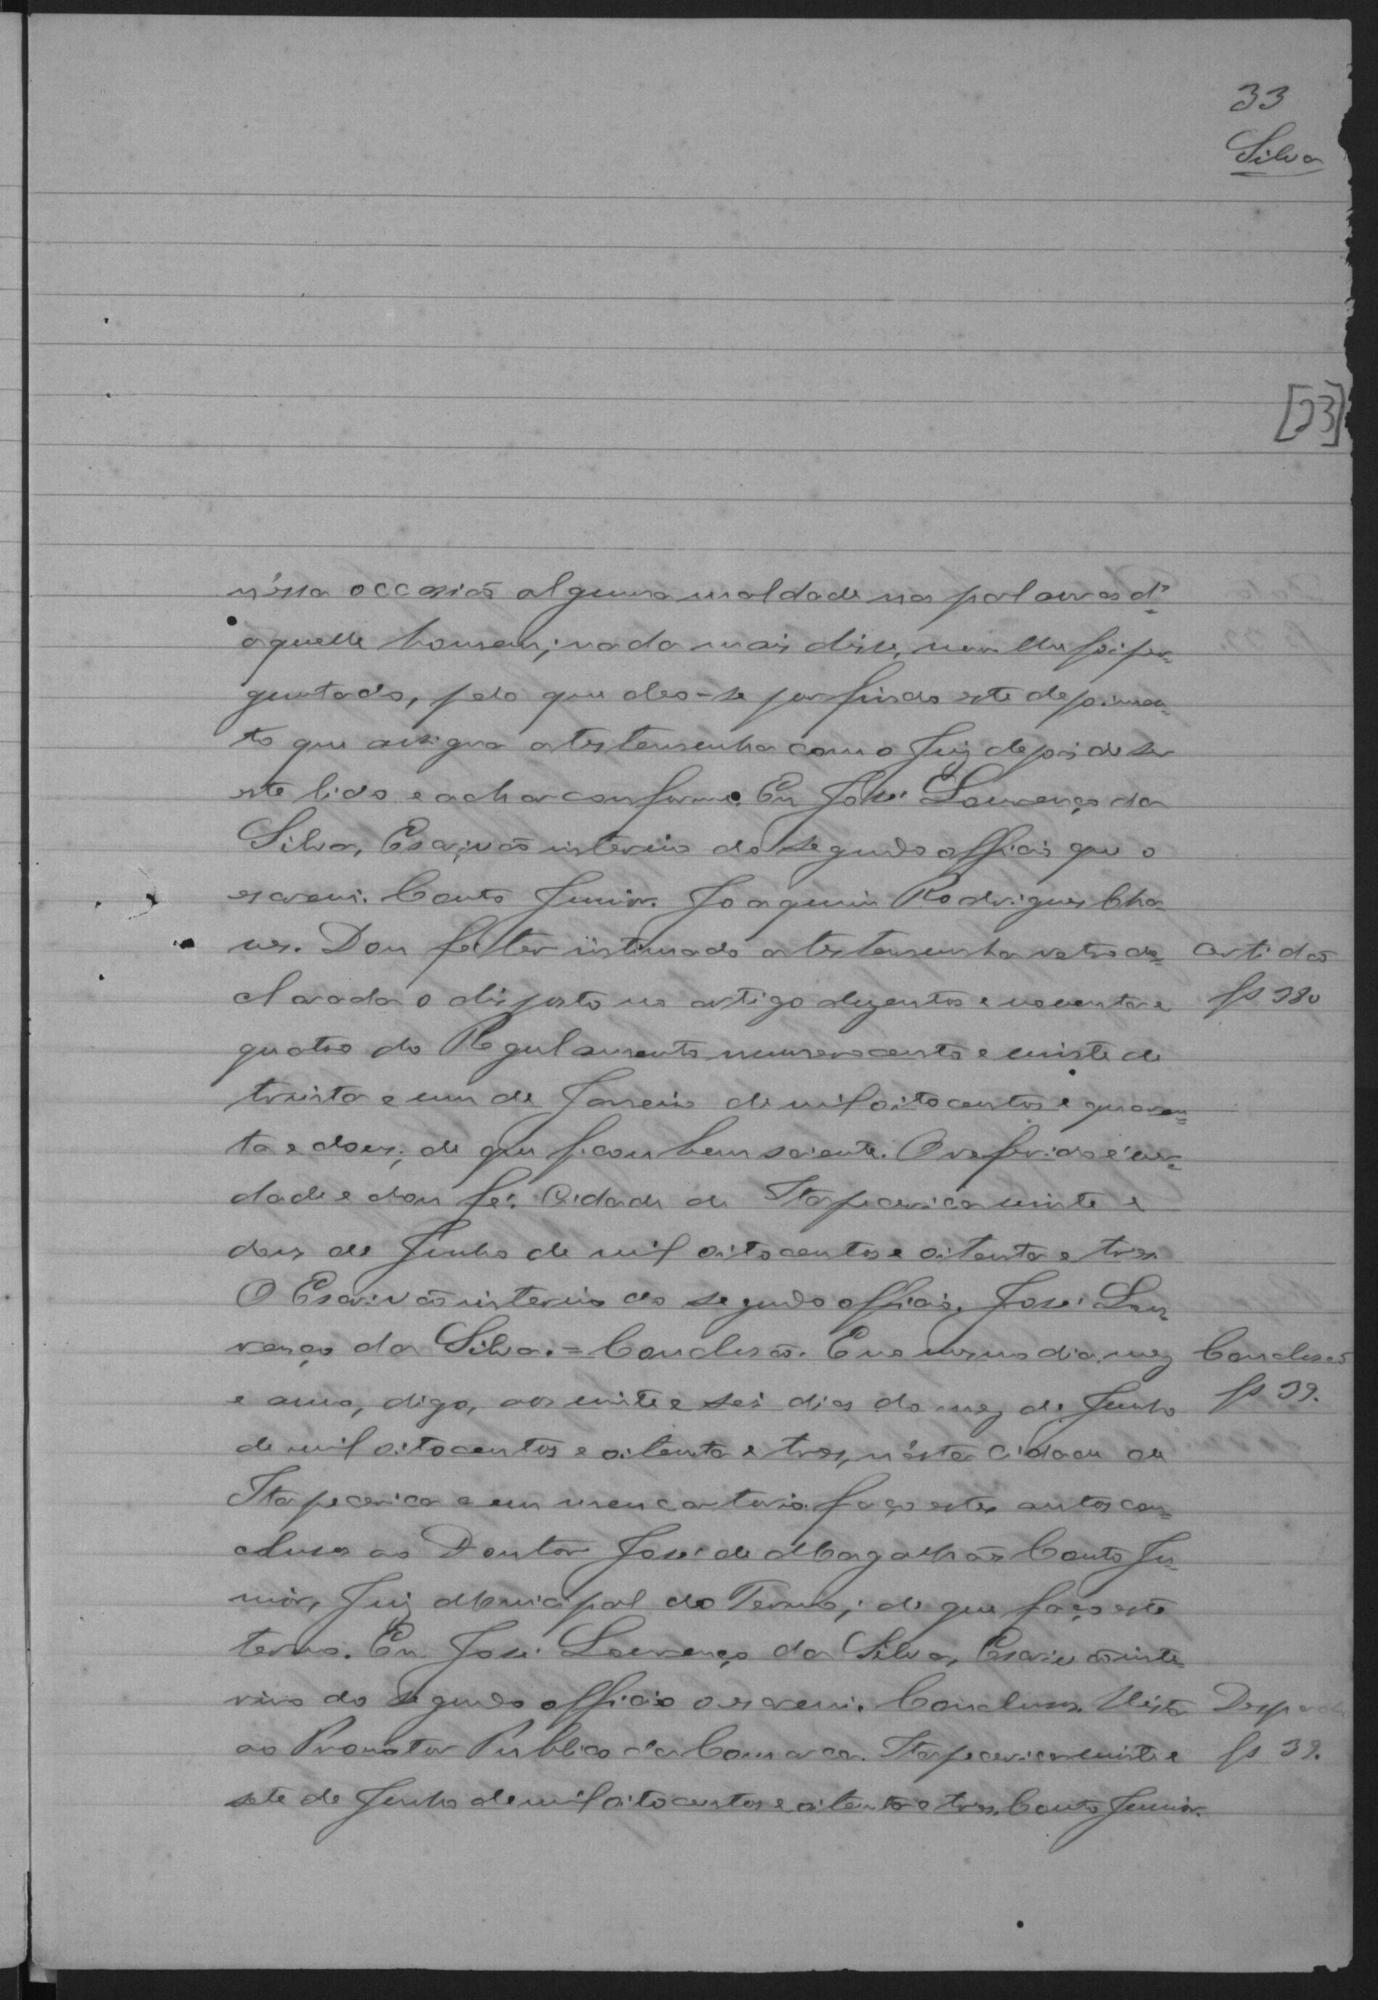 33
Silva
[23]
n'essa occasião alguma maldade nas palavras d'
aquelle homem; nada mais disse, nem lhe foi per-
guntado, pelo que deo-se por findo este depoimen-
to que assigna a testemunha com o Juiz depois de ser
este lido e achar conforme. Eu José Lourenço da
Silva, Escrivão interino do segundo officio que o
escrevi. Couto Junior. Joaquim Rodrigues Cha-
ves. Dou fé ter intimado a testemunha retro de-
clarada o disposto no artigo duzentos e noventa e
quatro do Regulamento numero cento e vinte de
trinta e um de Janeiro de mil oitocentos e quaren-
ta e dous; de que ficou bem sciente. O referido é ver-
dade e dou fé. Cidade de Itapecerica vinte e
dous de Junho de mil oitocentos e oitenta e tres.
O Escrivão interino do segundo officio, José Lou-
renço da Silva. = Conclusão. E no mesmo dia, mez
e anno, digo, aos vinte e seis dias do mez de Junho
de mil oitocentos e oitenta e tres, n'esta cidade de
Itapecerica e em meu cartorio faço estes autos con-
clusos ao Doutor José de Magalhães Couto Ju-
nior, Juiz Municipal do Termo; de que faço este
termo. Eu José Lourenço da Silva, Escrivão inte-
rino do segundo officio o escrevi. Conclusos. Vista
ao Promotor Publico da Comarca. Itapecerica vinte e
sete de Junho de mil oitocentos e oitenta e tres. Couto Junior.
Certidão
fs 38v
Conclusão
fs 39.
Despacho
fs 39.